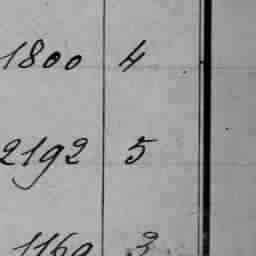 1800 4
2192 5
1169 3